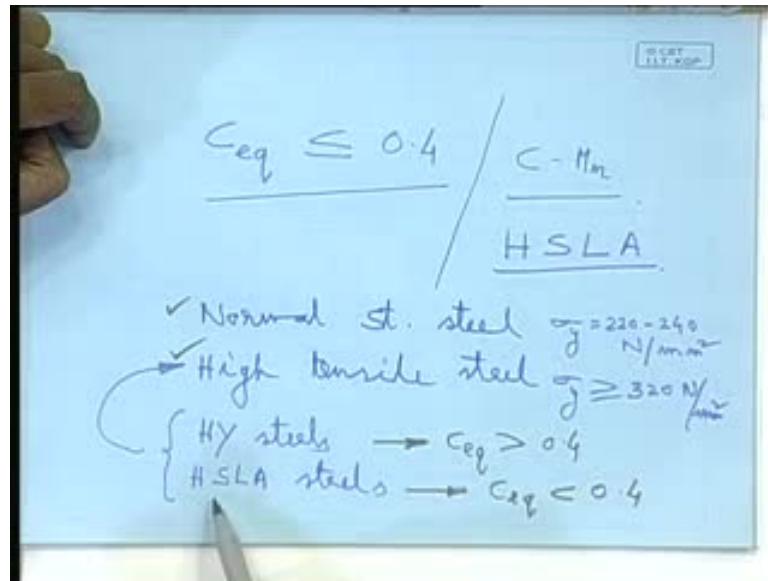 © CET
I.I.T. KGP
C_eq ≤ 0.4 / C - Mn
HSLA
✓ Normal St. steel σ_y = 220 - 240 N/mm²
✓ High tensile steel σ_y ≥ 320 N/mm²
HY steels → C_eq > 0.4
HSLA steels → C_eq < 0.4